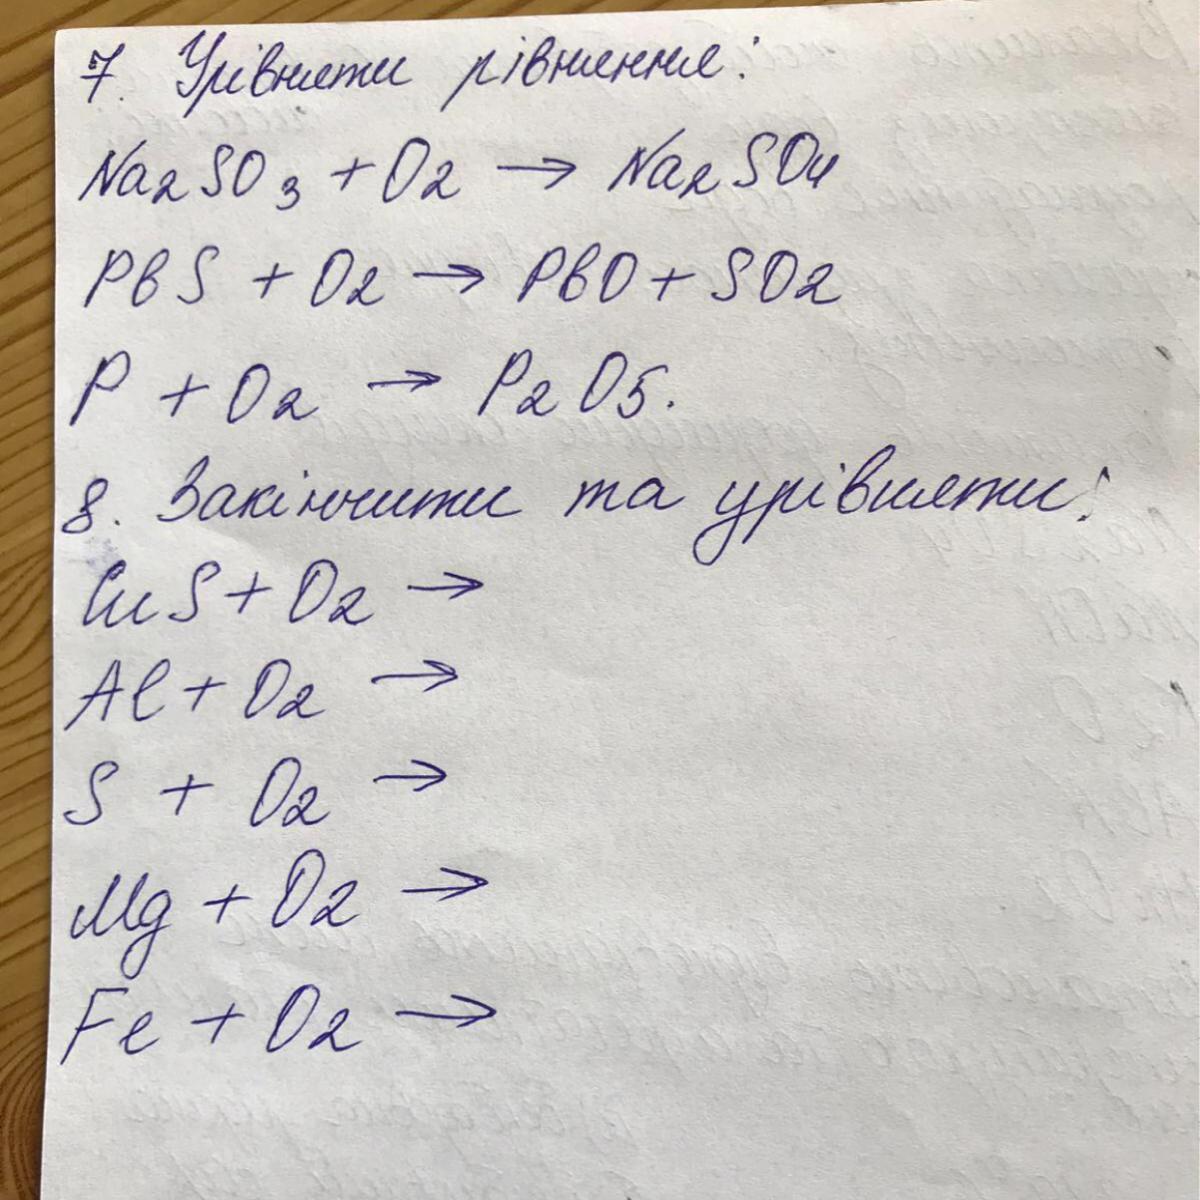 7. Урівняти рівняння:
Na2SO3 + O2 → Na2SO4
PbS + O2 → PbO + SO2
P + O2 → P2O5.
8. Закінчити та урівняти:
CuS + O2 →
Al + O2 →
S + O2 →
Mg + O2 →
Fe + O2 →